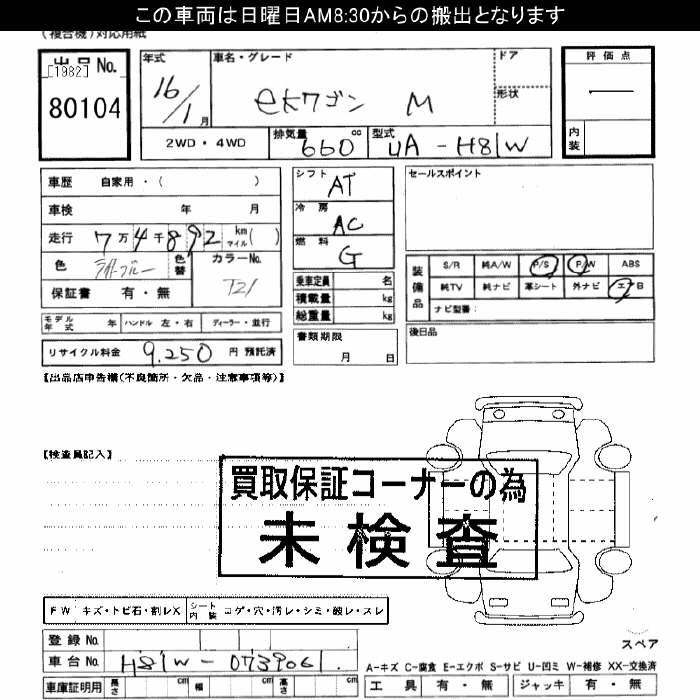 この車両は日曜日AM8:30からの搬出となります
(複合機)対応用紙
出品 No.
[1982]
80104
年式
16/1 月
車名・グレード
ekワゴン M
ドア
形状
評価点
内装
2WD・4WD
排気量 660 cc
型式 UA-H81W
車歴 自家用・( )
車検 年 月
走行 7万4千892 km マイル( )
色 ライトブルー 色替
カラーNo. T21
保証書 有・無
シフト AT
冷房 AC
燃料 G
乗車定員 名
積載量 kg
総重量 kg
セールスポイント
装備品
S/R 純A/W P/S P/W ABS
純TV 純ナビ 革シート 外ナビ エアB
ナビ型番:
モデル年式 年 ハンドル 左・右 ディーラー・並行
リサイクル料金 9,250 円 預託済
書類期限
月 日
後日品
【出品店申告欄(不良箇所・欠品・注意事項等)】
【検査員記入】
買取保証コーナーの為
未検査
FW キズ・トビ石・割レX シート内装 コゲ・穴・汚レ・シミ・破レ・スレ
登録 No.
車台 No. H81W-0739061
車庫証明用 長さ cm 幅 cm 高さ cm
スペア
A-キズ C-腐食 E-エクボ S-サビ U-凹ミ W-補修 XX-交換済
工具 有・無 ジャッキ 有・無